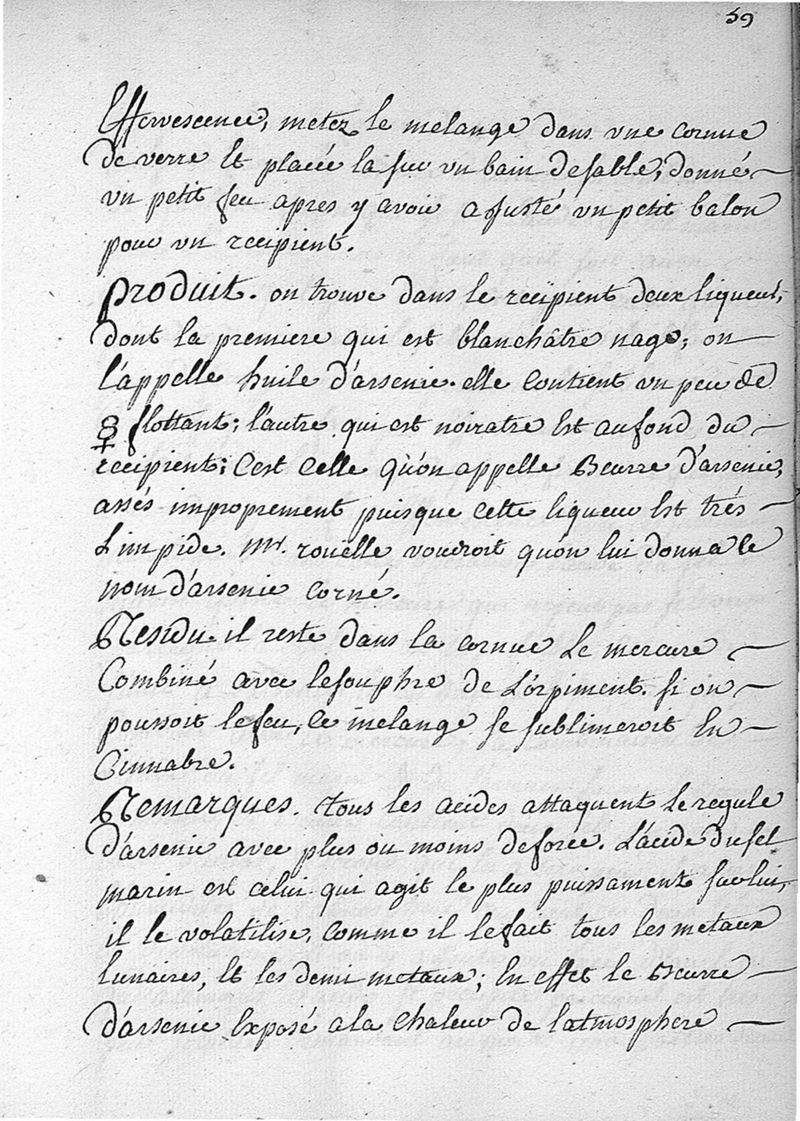 59
Effervescence, metez le melange dans vne cornue
de verre et placée la sur vn bain de sable, donné
vn petit feu apres y avoir ajusté vn petit balon
pour vn recipient.
Produit. on trouve dans le recipient deux liqueurs,
dont la premiere qui est blanchâtre nage; on
l'appelle huile d'arsenic. elle contient un peu de
☿ flottant; l'autre qui est noiratre est au fond du
recipient; c'est celle qu'on appelle Beurre d'arsenic,
assés improprement puisque cette liqueur est trés
Limpide. mr. rouelle voudroit qu'on lui donna le
nom d'arsenic corné.
Residu. il reste dans la cornue le mercure
Combiné avec le souphre de L'orpiment. si on
poussoit le feu, ce melange se sublimeroit en
Cinnabre.
Remarques. tous les acides attaquent Le regule
d'arsenic avec plus ou moins de force. L'acide du sel
marin est celui qui agit le plus puissament sur lui,
il le volatilise, comme il le fait tous les metaux
lunaires, et les demi metaux; en effet le Beurre
d'arsenic exposé a la chaleur de l'atmosphere